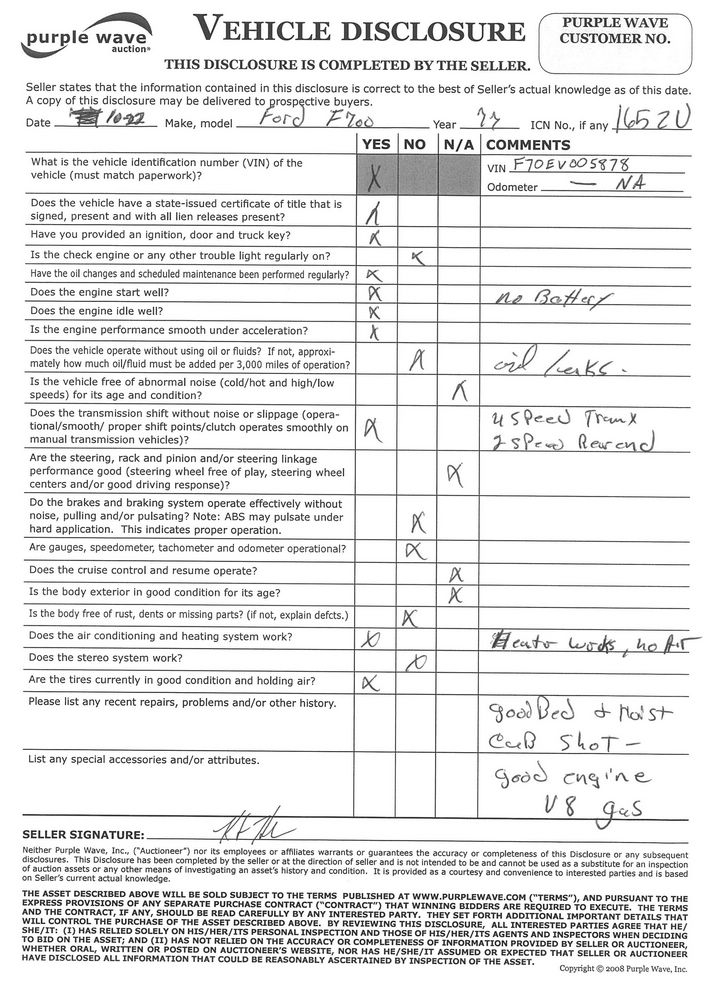 purple wave
auction®
VEHICLE DISCLOSURE
THIS DISCLOSURE IS COMPLETED BY THE SELLER.
PURPLE WAVE
CUSTOMER NO.
Seller states that the information contained in this disclosure is correct to the best of Seller's actual knowledge as of this date.
A copy of this disclosure may be delivered to prospective buyers.
Date 10-22 Make, model Ford F700 Year 77 ICN No., if any 1652U
YES NO N/A COMMENTS
What is the vehicle identification number (VIN) of the
vehicle (must match paperwork)? X VIN F70EV005878
Odometer — NA
Does the vehicle have a state-issued certificate of title that is
signed, present and with all lien releases present? X
Have you provided an ignition, door and truck key? X
Is the check engine or any other trouble light regularly on? X
Have the oil changes and scheduled maintenance been performed regularly? X
Does the engine start well? X no Battery
Does the engine idle well? X
Is the engine performance smooth under acceleration? X
Does the vehicle operate without using oil or fluids? If not, approxi-
mately how much oil/fluid must be added per 3,000 miles of operation? X oil leaks.
Is the vehicle free of abnormal noise (cold/hot and high/low
speeds) for its age and condition? X
Does the transmission shift without noise or slippage (opera-
tional/smooth/ proper shift points/clutch operates smoothly on
manual transmission vehicles)? X 4 SPeed Tranx
2 SPeed Rearend
Are the steering, rack and pinion and/or steering linkage
performance good (steering wheel free of play, steering wheel
centers and/or good driving response)? X
Do the brakes and braking system operate effectively without
noise, pulling and/or pulsating? Note: ABS may pulsate under
hard application. This indicates proper operation. X
Are gauges, speedometer, tachometer and odometer operational? X
Does the cruise control and resume operate? X
Is the body exterior in good condition for its age? X
Is the body free of rust, dents or missing parts? (if not, explain defcts.) X
Does the air conditioning and heating system work? X Heater works, no Air
Does the stereo system work? X
Are the tires currently in good condition and holding air? X
Please list any recent repairs, problems and/or other history. good Bed + Hoist
CaB ShoT —
List any special accessories and/or attributes. good engine
V8 gas
SELLER SIGNATURE:
Neither Purple Wave, Inc., ("Auctioneer") nor its employees or affiliates warrants or guarantees the accuracy or completeness of this Disclosure or any subsequent
disclosures. This Disclosure has been completed by the seller or at the direction of seller and is not intended to be and cannot be used as a substitute for an inspection
of auction assets or any other means of investigating an asset's history and condition. It is provided as a courtesy and convenience to interested parties and is based
on Seller's current actual knowledge.
THE ASSET DESCRIBED ABOVE WILL BE SOLD SUBJECT TO THE TERMS PUBLISHED AT WWW.PURPLEWAVE.COM ("TERMS"), AND PURSUANT TO THE
EXPRESS PROVISIONS OF ANY SEPARATE PURCHASE CONTRACT ("CONTRACT") THAT WINNING BIDDERS ARE REQUIRED TO EXECUTE. THE TERMS
AND THE CONTRACT, IF ANY, SHOULD BE READ CAREFULLY BY ANY INTERESTED PARTY. THEY SET FORTH ADDITIONAL IMPORTANT DETAILS THAT
WILL CONTROL THE PURCHASE OF THE ASSET DESCRIBED ABOVE. BY REVIEWING THIS DISCLOSURE, ALL INTERESTED PARTIES AGREE THAT HE/
SHE/IT: (I) HAS RELIED SOLELY ON HIS/HER/ITS PERSONAL INSPECTION AND THOSE OF HIS/HER/ITS AGENTS AND INSPECTORS WHEN DECIDING
TO BID ON THE ASSET; AND (II) HAS NOT RELIED ON THE ACCURACY OR COMPLETENESS OF INFORMATION PROVIDED BY SELLER OR AUCTIONEER,
WHETHER ORAL, WRITTEN OR POSTED ON AUCTIONEER'S WEBSITE, NOR HAS HE/SHE/IT ASSUMED OR EXPECTED THAT SELLER OR AUCTIONEER
HAVE DISCLOSED ALL INFORMATION THAT COULD BE REASONABLY ASCERTAINED BY INSPECTION OF THE ASSET.
Copyright © 2008 Purple Wave, Inc.